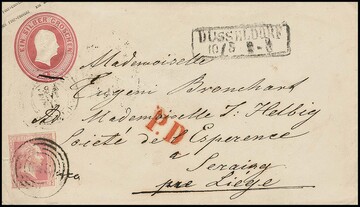 EIN SILBER GROSCHEN
DÜSSELDORF
10/5
Mademoiselle
Eugeni Bronchart
Ad. Mademoiselle J: Helbig
P.D
Société de l'Esperence
a
Seraing
pre Liége